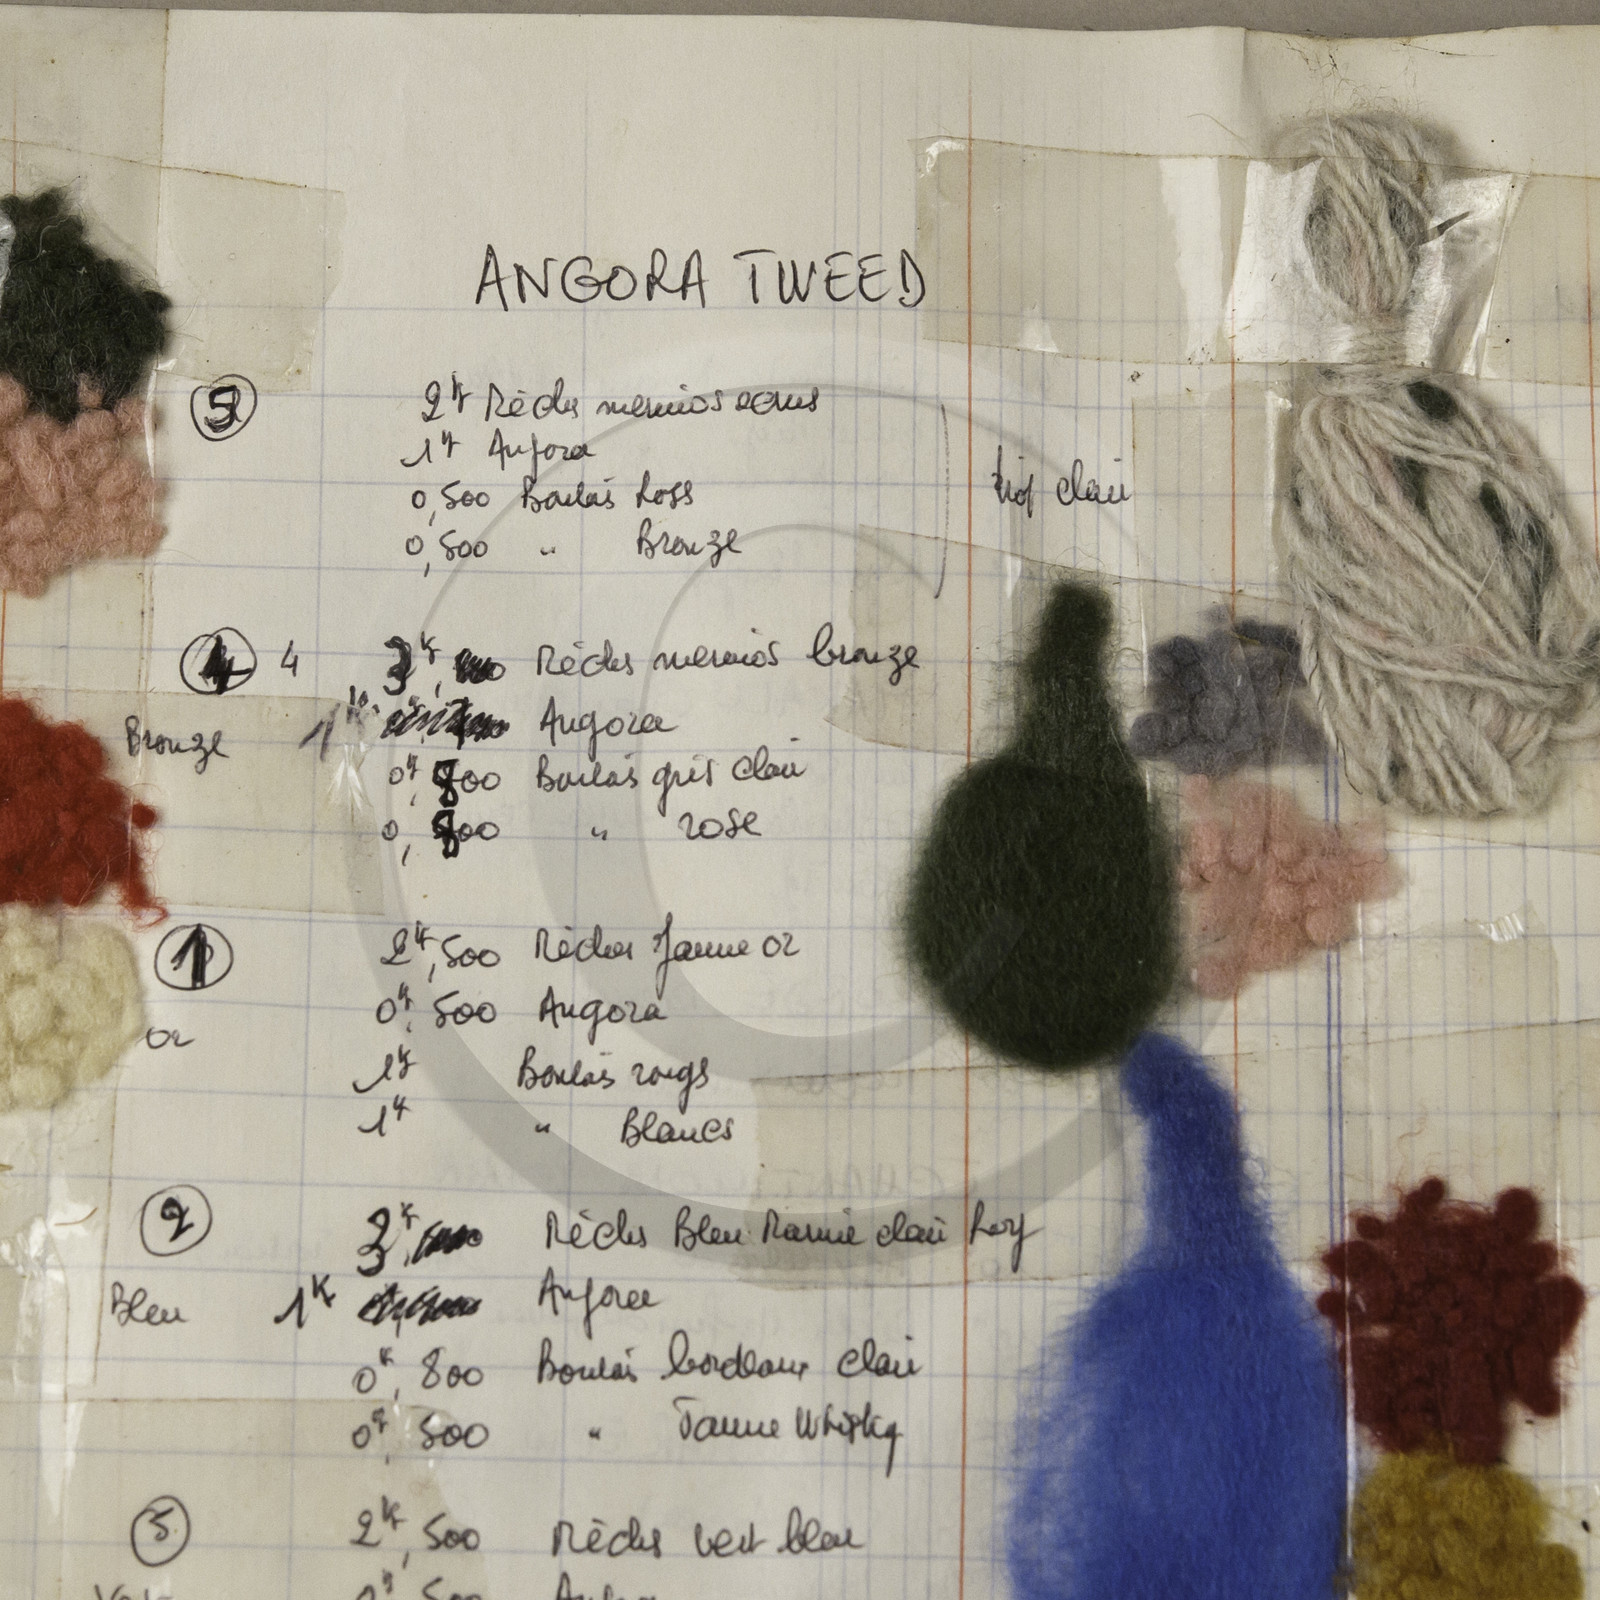 ANGORA TWEED
2k Mèches merinos ecrus
1k Angora
0,500 Boulas
trop clair
0,500 " Bronze
4 4 3k, Mèches merinos bronze
Bronze 1k Angora
0k,800 Boulas gris clair
0,800 " rose
1 2k,500 Mèches Jaune or
0k,500 Angora
or
1k Boulas rouge
1k " Blancs
2 3k, Mèches Bleu Marine clair Roy
Bleu 1k Angora
0k,800 Boulas bordeaux clair
0k,500 " Jaune Whisky
5 2k,500 Mèches vert bleu